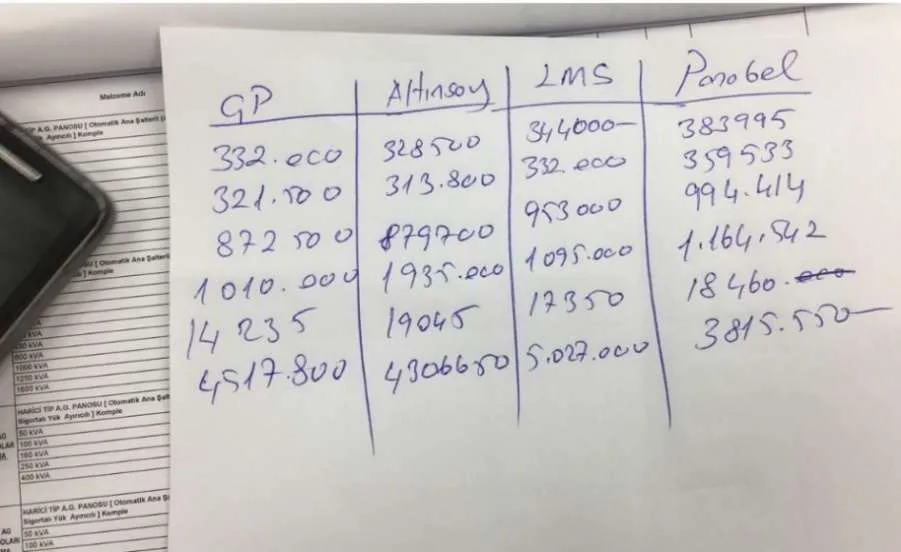 Malzeme Adı
TİP A.G. PANOSU [ Otomatik Ana Şalterli
Ayırıcılı ] Komple
GP Altınsoy LMS Panobel
332.000 328500 344000- 383995
321.500 313.800 332.000 359533
872500 879700 953000 994.414
1010.000 1935.000 1095.000 1.164.542
14235 19045 17350 18460.000
4517.800 4306650 5.027.000 3815.550-
PANOSU [ Otomatik Ana Şalterli
] Komple
1000 kVA
1250 kVA
1600 kVA
HARİCİ TİP A.G. PANOSU [ Otomatik Ana Şalt
Sigortalı Yük Ayırıcılı ] Komple
50 kVA
AG 100 kVA
OLAR 160 kVA
MA 250 kVA
400 kVA
HARİCİ TİP A.G. PANOSU [ Otomatik Ana Ş
Sigortalı Yük Ayırıcılı ] Komple
AG 50 kVA
OLARI 100 kVA